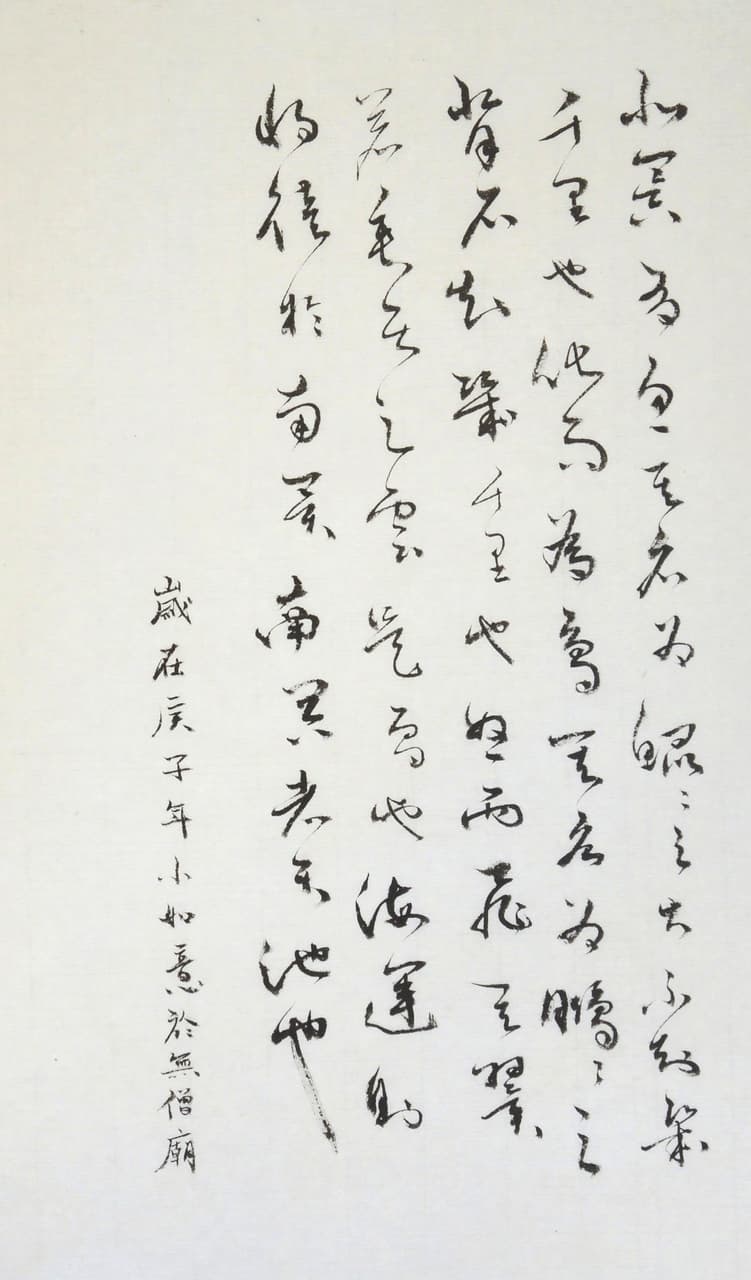 北冥有魚其名為鯤〻之大不知幾
千里也化而為鳥其名為鵬〻之
背不知幾千里也怒而飛其翼
若垂天之雲是鳥也海運則
將徙於南冥南冥者天池也
歲在庚子年小如意於無僧廟